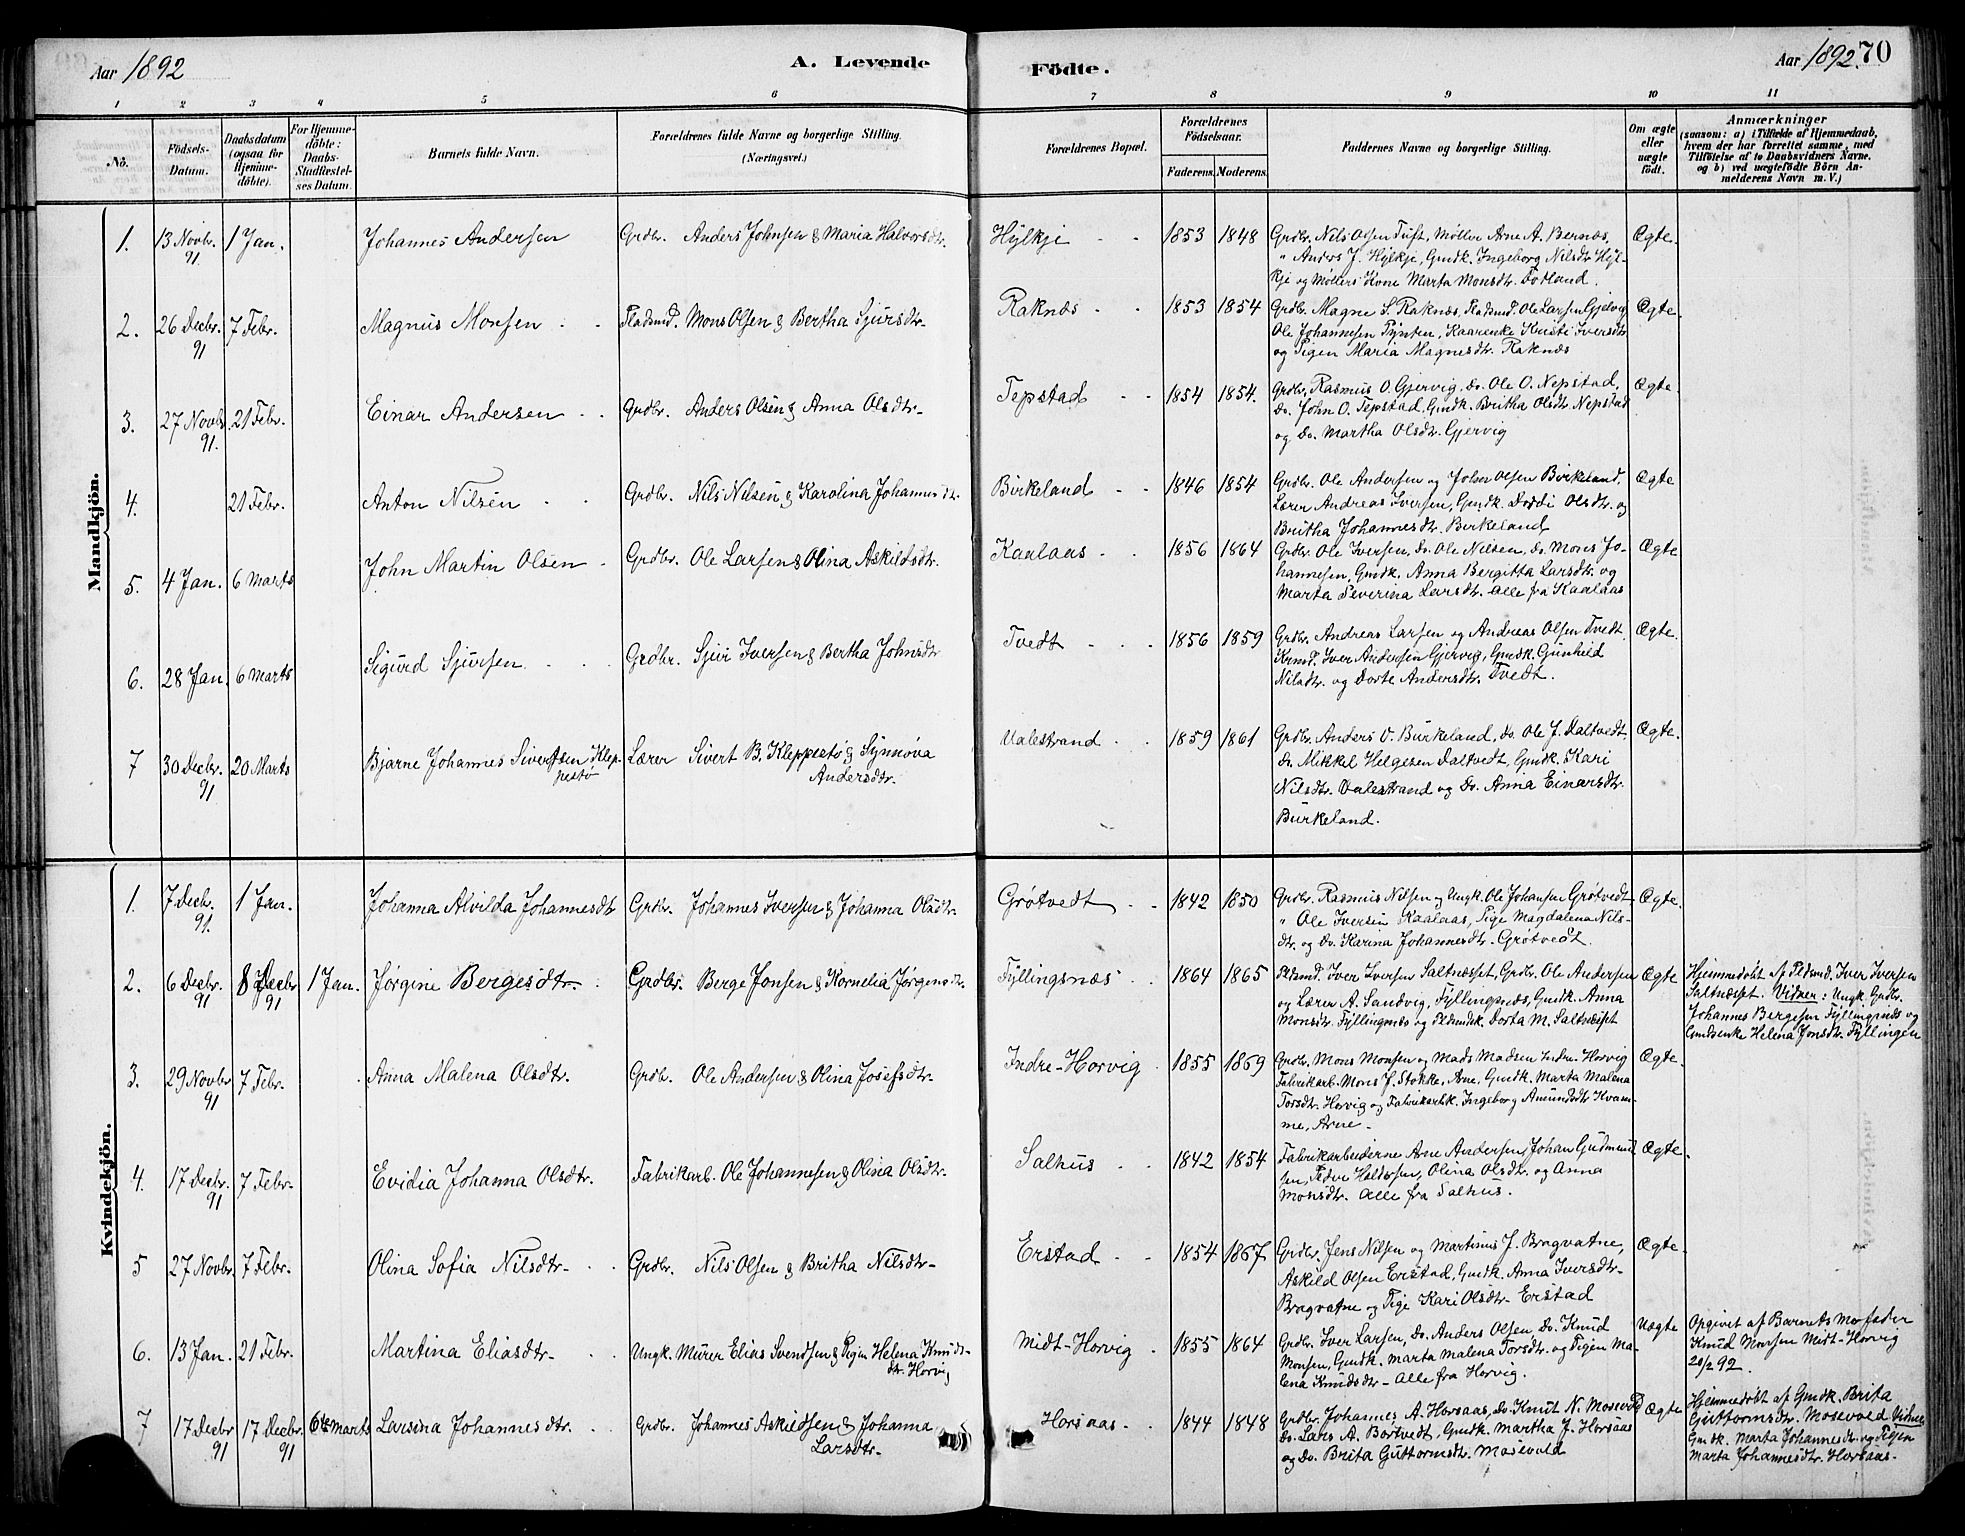 Aar 1892 A. Levende Födte. Aar 1892. 70
1 2 3 4 5 6 7 8 9 10 11
No.
Födsels-Datum.
Daabsdatum (ogsaa for Hjemmedöbte).
For Hjemmedöbte: Daabs-Stadfæstelses Datum.
Barnets fulde Navn.
Forældrenes fulde Navne og borgerlige Stilling. (Næringsvei.)
Forældrenes Bopæl.
Forældrenes Födselsaar. Faderens. Moderens.
Faddernes Navne og borgerlige Stilling.
Om ægte eller uægte födt.
Anmærkninger (saasom: a) i Tilfælde af Hjemmedaab, hvem der har forrettet samme, med Tilföielse af to Daabsvidners Navne, og b) ved uægtefödte Börn Anmelderens Navn m. V.)
Mandkjön.
1. 13 Novbr. 91 1 Jan. Johannes Andersen Grdbr. Anders Johnsen & Maria Halvorsdtr. Hylkje 1853 1848 Grdbr. Nils Olsen Tuft, Møller Arne A. Bernæs, Ægte.
" Anders J. Hylkje, Gmdk. Ingeborg Nilsdtr Hyl-
kje og Møllers Kone Marta Monsdtr. Totland.
2. 26 Decbr. 91 7 Febr. Magnus Monsen Pladsmd. Mons Olsen & Bertha Sjursdtr. Raknæs 1853 1854 Grdbr. Magne S. Raknæs, Pladsmd. Ole Larsen Gjervig Ægte.
Ole Johannesen Tynten, Kaarenke Kristi Iversdtr
og Pigen Maria Magnesdtr. Raknæs
3. 27 Novbr. 91. 21 Febr. Einar Andersen Grdbr. Anders Olsen & Anna Olsdtr. Tepstad 1854 1854. Grdbr. Rasmus O. Gjervig, do. Ole O. Nepstad, Ægte.
do. John O. Tepstad, Gmdk. Britha Olsdtr. Nepstad
og do. Martha Olsdtr. Gjervig
4. 21 Febr. Anton Nilsen Grdbr. Nils Nilsen & Karolina Johannesdtr. Birkeland 1846 1854 Grdbr. Ole Andersen og John Olsen Birkeland, Ægte
Lærer Andreas Iversen, Gmdk. Dordi Olsdtr. og
Britha Johannesdtr. Birkeland
5. 4 Jan. 6 Marts John Martin Olsen Grdbr. Ole Larsen & Olina Askildsdtr. Kaalaas 1856 1864 Grdbr. Ole Iversen, do. Ole Nilsen, do. Mons Jo- Ægte
hannesen, Gmdk. Anna Bergitta Larsdtr. og
Marta Severina Larsdtr. alle fra Kaalaas
6. 28 Jan. 6 Marts Sigurd Sjursen Grdbr. Sjur Iversen & Bertha Johnsdtr Tvedt 1856 1859 Grdbr. Andreas Larsen og Andreas Olsen Tvedt, Ægte.
Krmd. Iver Andersen Gjervig, Gmdk. Gunhild
Nilsdtr. og Dorte Andersdtr. Tvedt.
7 30 Decbr. 91 20 Marts Bjarne Johannes Sivertsen Klep-
pestø Lærer Sivert B. Kleppestø & Synnøva
Andersdtr. Valestrand 1859 1861 Grdbr. Anders O. Burkeland, do. Ole J. Daltvedt, Ægte.
do. Mikkel Helgesen Daltvedt, Gmdk. Kari
Nilsdtr. Valestrand og do. Anna Einarsdtr.
Burkeland.
Kvindekjön.
1. 7 Decbr. 91. 1 Jan. Johanna Alvilda Johannesdtr Grdbr. Johannes Iversen & Johanna Olsdtr. Grøtvedt 1842 1850 Grdbr. Rasmus Nilsen og Ungk. Ole Johansen Grøtvedt Ægte.
" Ole Iversen Kaalaas, Pige Magdalena Nils-
dtr. og do. Karina Johannesdtr. Grøtvedt.
2. 6 Decbr. 91 8 Decbr 91 1 Jan. Jørgine Bergesdtr. Grdbr. Berge Jonsen & Kornelia Jørgensdtr. Fyllingsnæs 1864 1865 Pldsmd. Iver Iversen Saltnæsset, Grdbr. Ole Andersen Ægte
og Lærer A. Sandvig, Fyllingsnæs, Gmdk. Anna
Monsdtr. Fyllingsnæs og Pldsmdsk. Dorta M. Saltnæsset
Hjemmedøbt af Pldsmd. Iver Iversen
Saltnæsset. Vidner: Ungk. Grdbr.
Johannes Bergesen Fyllingsnæs og
Gmdsenke Helena Jonsdtr. Fyllingen
3. 29 Novbr 91 7 Febr. Anna Malena Olsdtr. Grdbr. Ole Andersen & Olina Josefsdtr. Indre-Horvig 1855 1869 Grdbr. Mons Monsen og Mads Madsen Indre-Horvig Ægte.
Fabrikarb. Mons J. Stokke, Arne, Gmdk. Marta Malena
Torsdtr. Horvig og Fabrikarbk. Ingeborg Amundsdtr Kvam-
me, Arne.
4. 17 Decbr. 91 7 Febr. Evidia Johanna Olsdtr. Fabrikarb. Ole Johannesen & Olina Olsdtr. Salhus 1842 1854 Fabrikarbeiderne Arne Andersen, Johan Gudmund- Ægte.
sen, Peder Haldorsen, Olina Olsdtr. og Anna
Monsdtr. alle fra Salhus.
5 27 Novbr. 91 7 Febr. Olina Sofia Nilsdtr. Grdbr. Nils Olsen & Britha Nilsdtr. Erstad 1854 1867 Grdbr. Jens Nilsen og Martinus J. Bragvatne, Ægte.
Askild Olsen Erstad, Gmdk. Anna Iversdtr.
Bragvatne og Pige Kari Olsdtr. Erstad
6. 13 Jan. 21 Febr. Martina Eliasdtr. Ungk. Murer Elias Svendsen & Pigen Helena Knuds-
dtr. Horvig Midt-Horvig 1855 1864 Grdbr. Iver Larsen, do. Anders Olsen, do. Knud Uægte
Monsen, Gmdk. Marta Malena Torsdtr. og Pigen Ma-
lena Knudsdtr. Alle fra Horvig.
Opgivet af Barnets Morfader
Knud Monsen Midt-Horvig
20/2 92.
7 17 Decbr 91 17 Decbr. 91 6te Marts Larsina Johannesdtr. Grdbr. Johannes Askildsen & Johanna
Larsdtr. Horsaas 1844 1848 Grdbr. Johannes A. Horsaas, do. Knut N. Mosevold Ægte
do. Lars A. Bortvedt, Gmdk. Martha J. Horsaas
og do. Brita Guttormsdtr. Mosevold
Hjemmedøbt af Gmdk. Brita
Guttormsdtr. Mosevold Vidner
Gmdk. Marta Johannesdtr. og Pigen
Marta Johannesdtr. Horsaas.